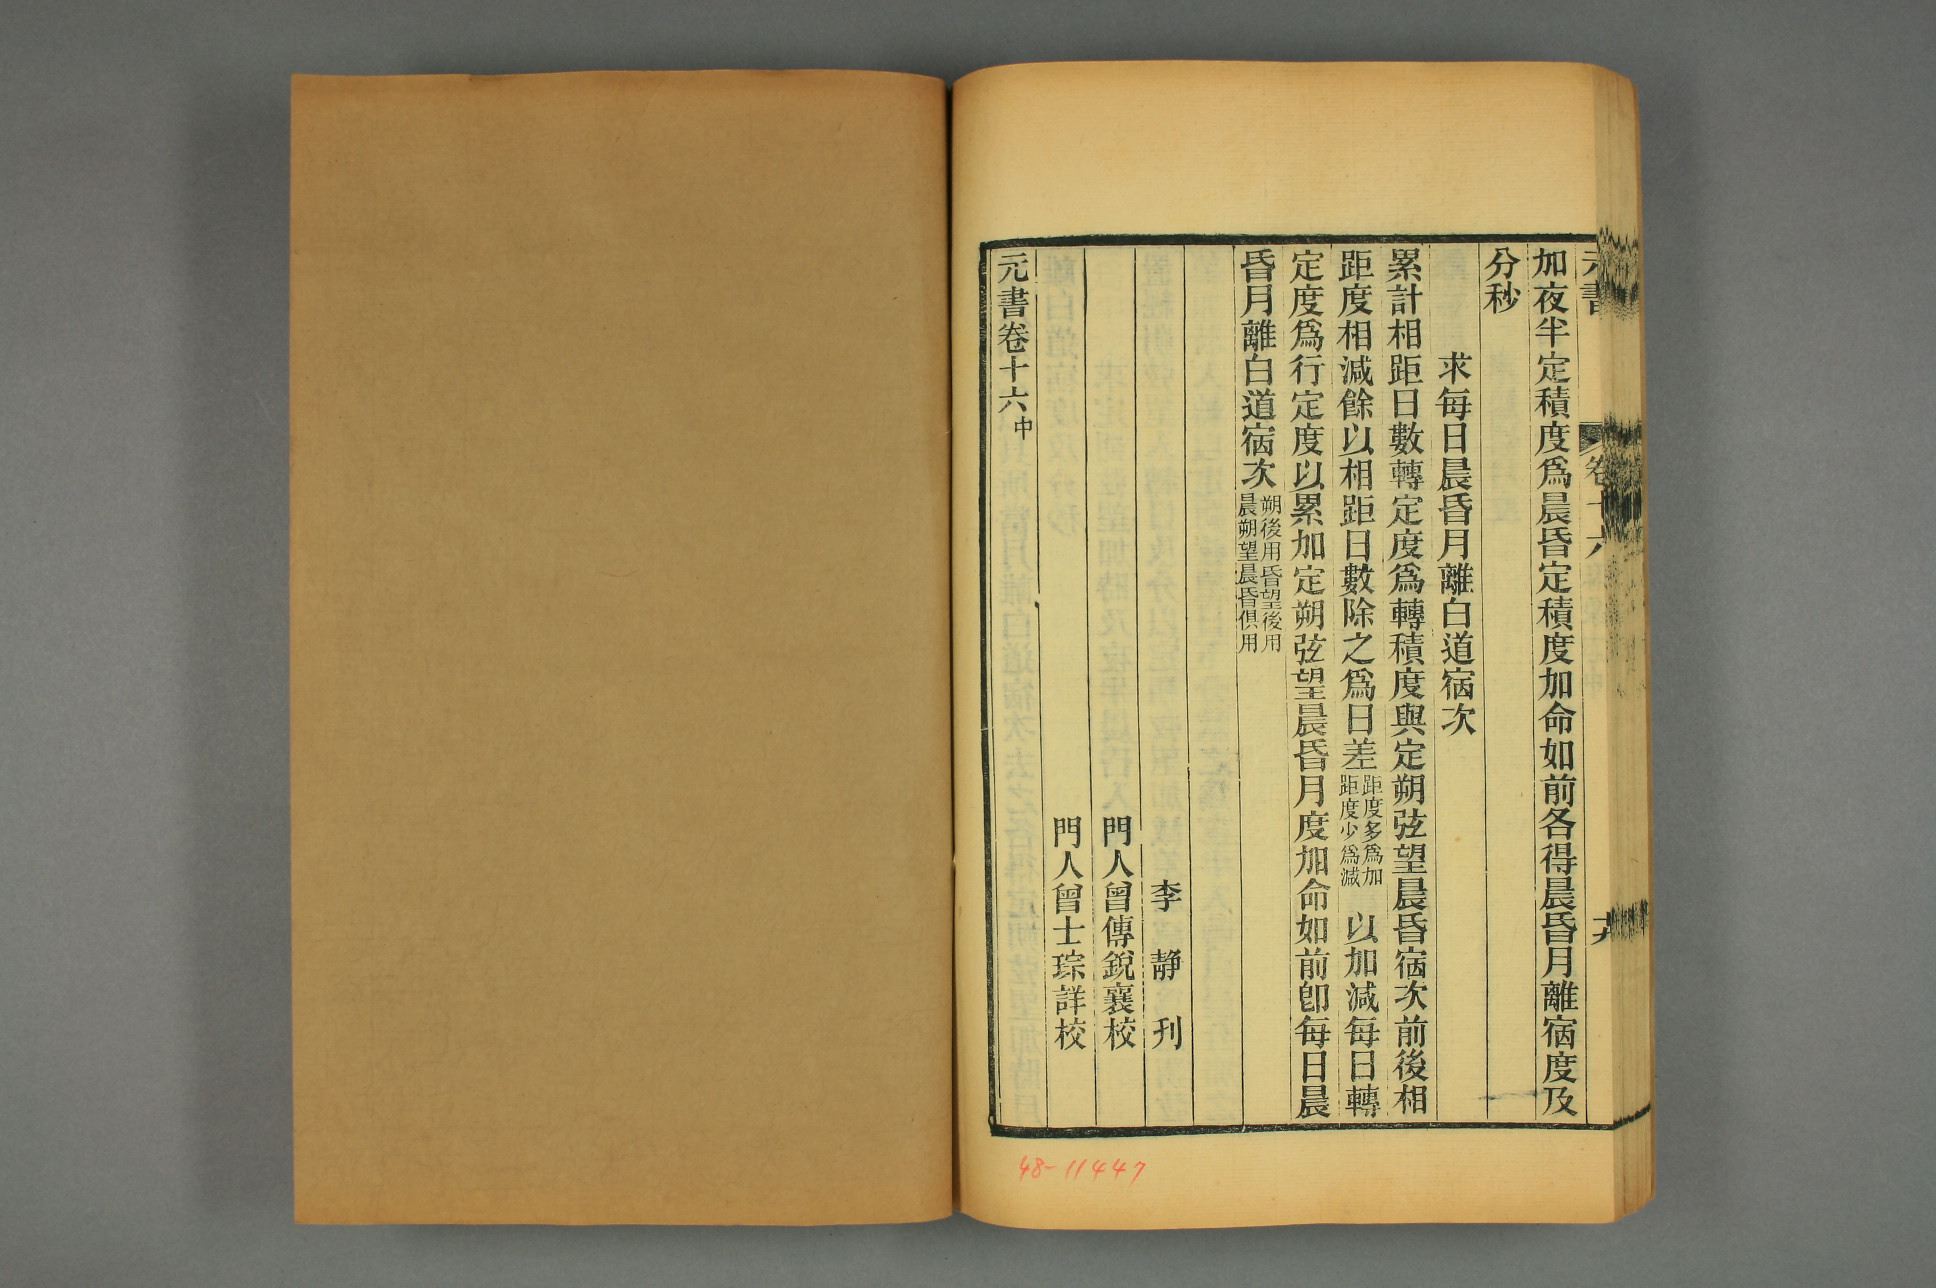 加夜半定積度爲晨昏定積度加命如前各得晨昏月離宿度及
分秒
求每日晨昏月離白道宿次
累計相距日數轉定度爲轉積度與定朔弦望晨昏宿次前後相
距度相減餘以相距日數除之爲日差距度多爲加距度少爲減以加減每日轉
定度爲行定度以累加定朔弦望晨昏月度加命如前卽每日晨
昏月離白道宿次朔後用昏望後用晨朔望晨昏俱用
李靜刋
門人曾傳銳襄校
門人曾士琮詳校
元書卷十六中
48-11447